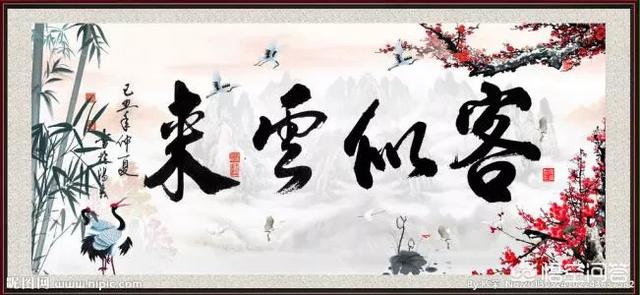 客似雲来
己丑年仲夏
昵图网 www.nipic.com
悟空问答